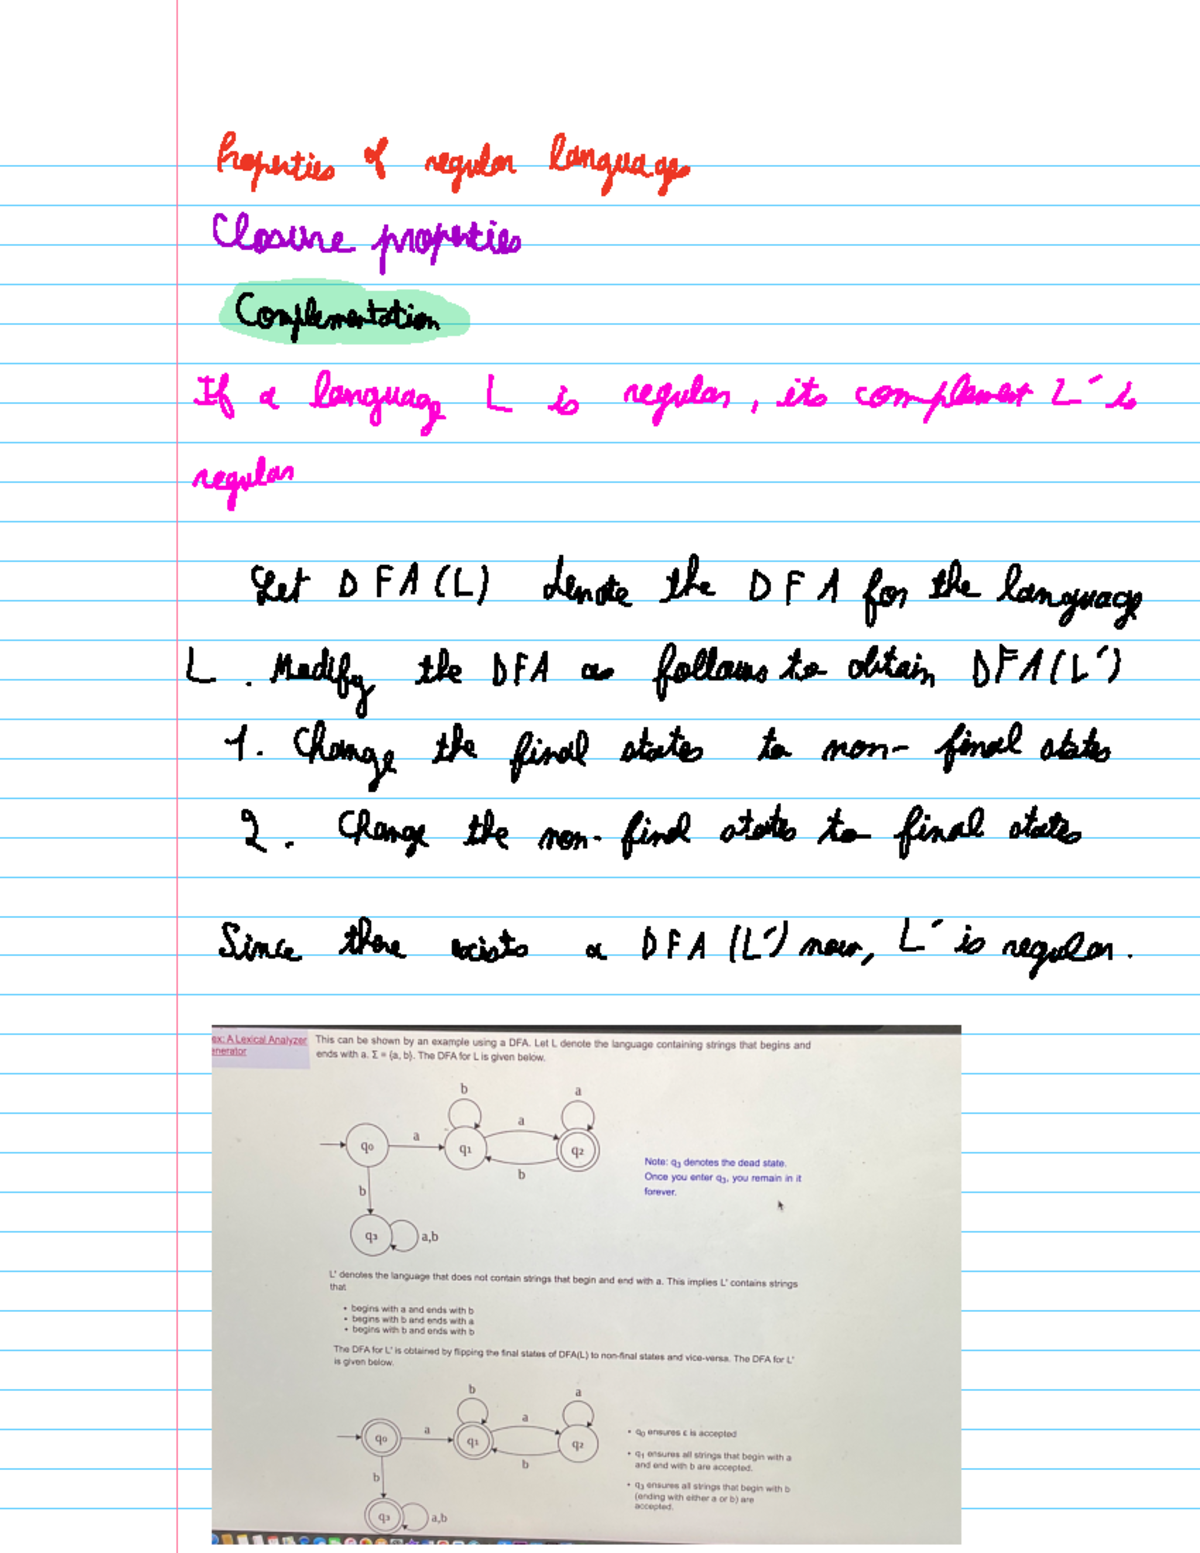 Properties of regular languages
Closure properties
Complementation
If a language L is regular, its complement L' is
regular
Let DFA(L) denote the DFA for the language
L. Modify the DFA as follows to obtain DFA(L')
1. Change the final states to non-final states
2. Change the non-final states to final states
Since there exists a DFA (L') now, L' is regular.
ex: A Lexical Analyzer
enerator
This can be shown by an example using a DFA. Let L denote the language containing strings that begins and
ends with a. Σ = {a, b}. The DFA for L is given below.
b
a
q0
a
q1
a
b
q2
b
q3
a,b
Note: q3 denotes the dead state.
Once you enter q3, you remain in it
forever.
L' denotes the language that does not contain strings that begin and end with a. This implies L' contains strings
that
• begins with a and ends with b
• begins with b and ends with a
• begins with b and ends with b
The DFA for L' is obtained by flipping the final states of DFA(L) to non-final states and vice-versa. The DFA for L'
is given below.
b
a
q0
a
q1
a
b
q2
b
q3
a,b
• q0 ensures ε is accepted
• q1 ensures all strings that begin with a
and end with b are accepted.
• q3 ensures all strings that begin with b
(ending with either a or b) are
accepted.